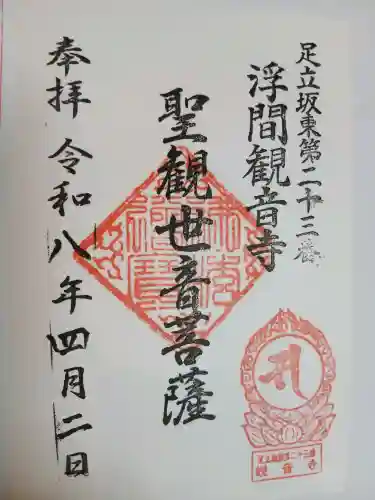 足立坂東第二十三番
浮間観音寺
聖観世音菩薩
奉拝 令和八年四月二日
観音寺